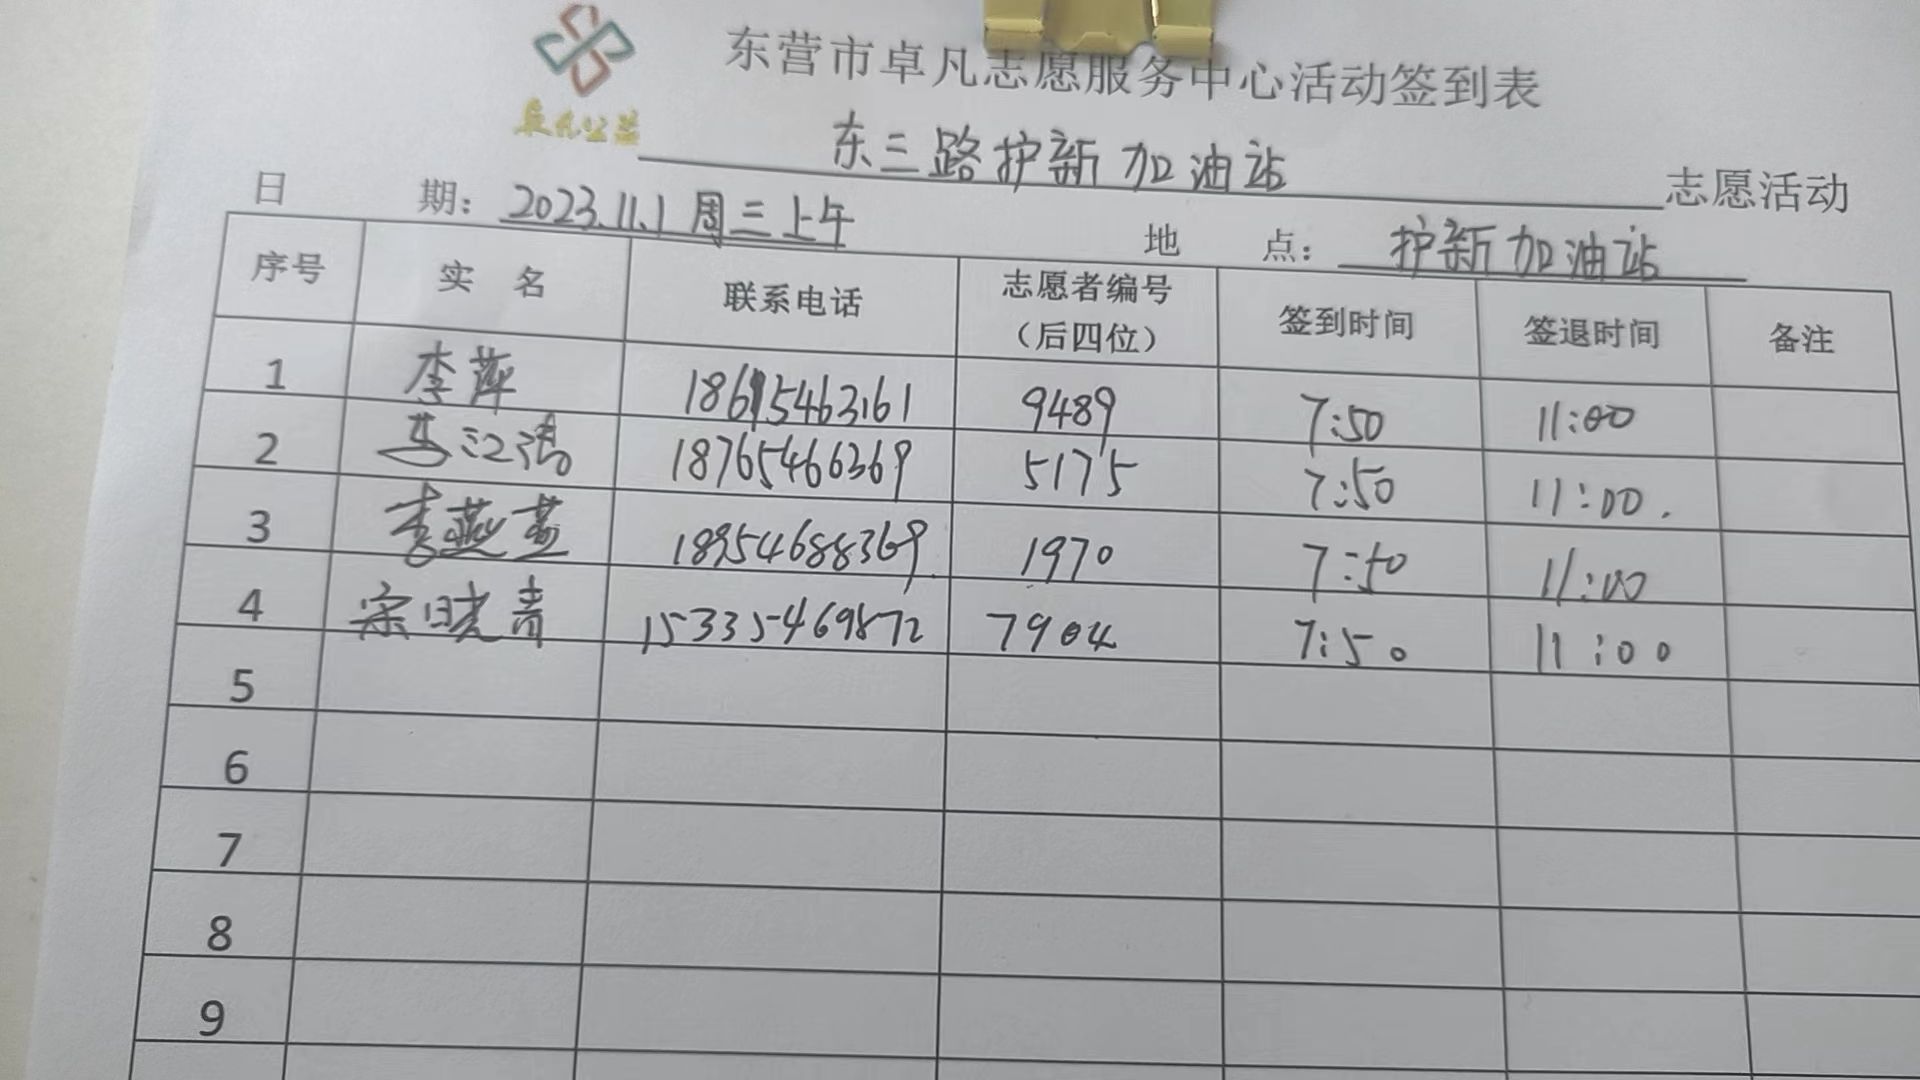 东营市卓凡志愿服务中心活动签到表
卓凡公益
东三路护新加油站 志愿活动
日 期：2023.11.1 周三上午 地 点：护新加油站
序号 实 名 联系电话 志愿者编号（后四位） 签到时间 签退时间 备注
1 李萍 18615463161 9489 7:50 11:00
2 18765466369 5175 7:50 11:00.
3 李燕 18954688369 1970 7:50 11:00
4 宋晓青 15335469872 7904 7:50 11:00
5
6
7
8
9